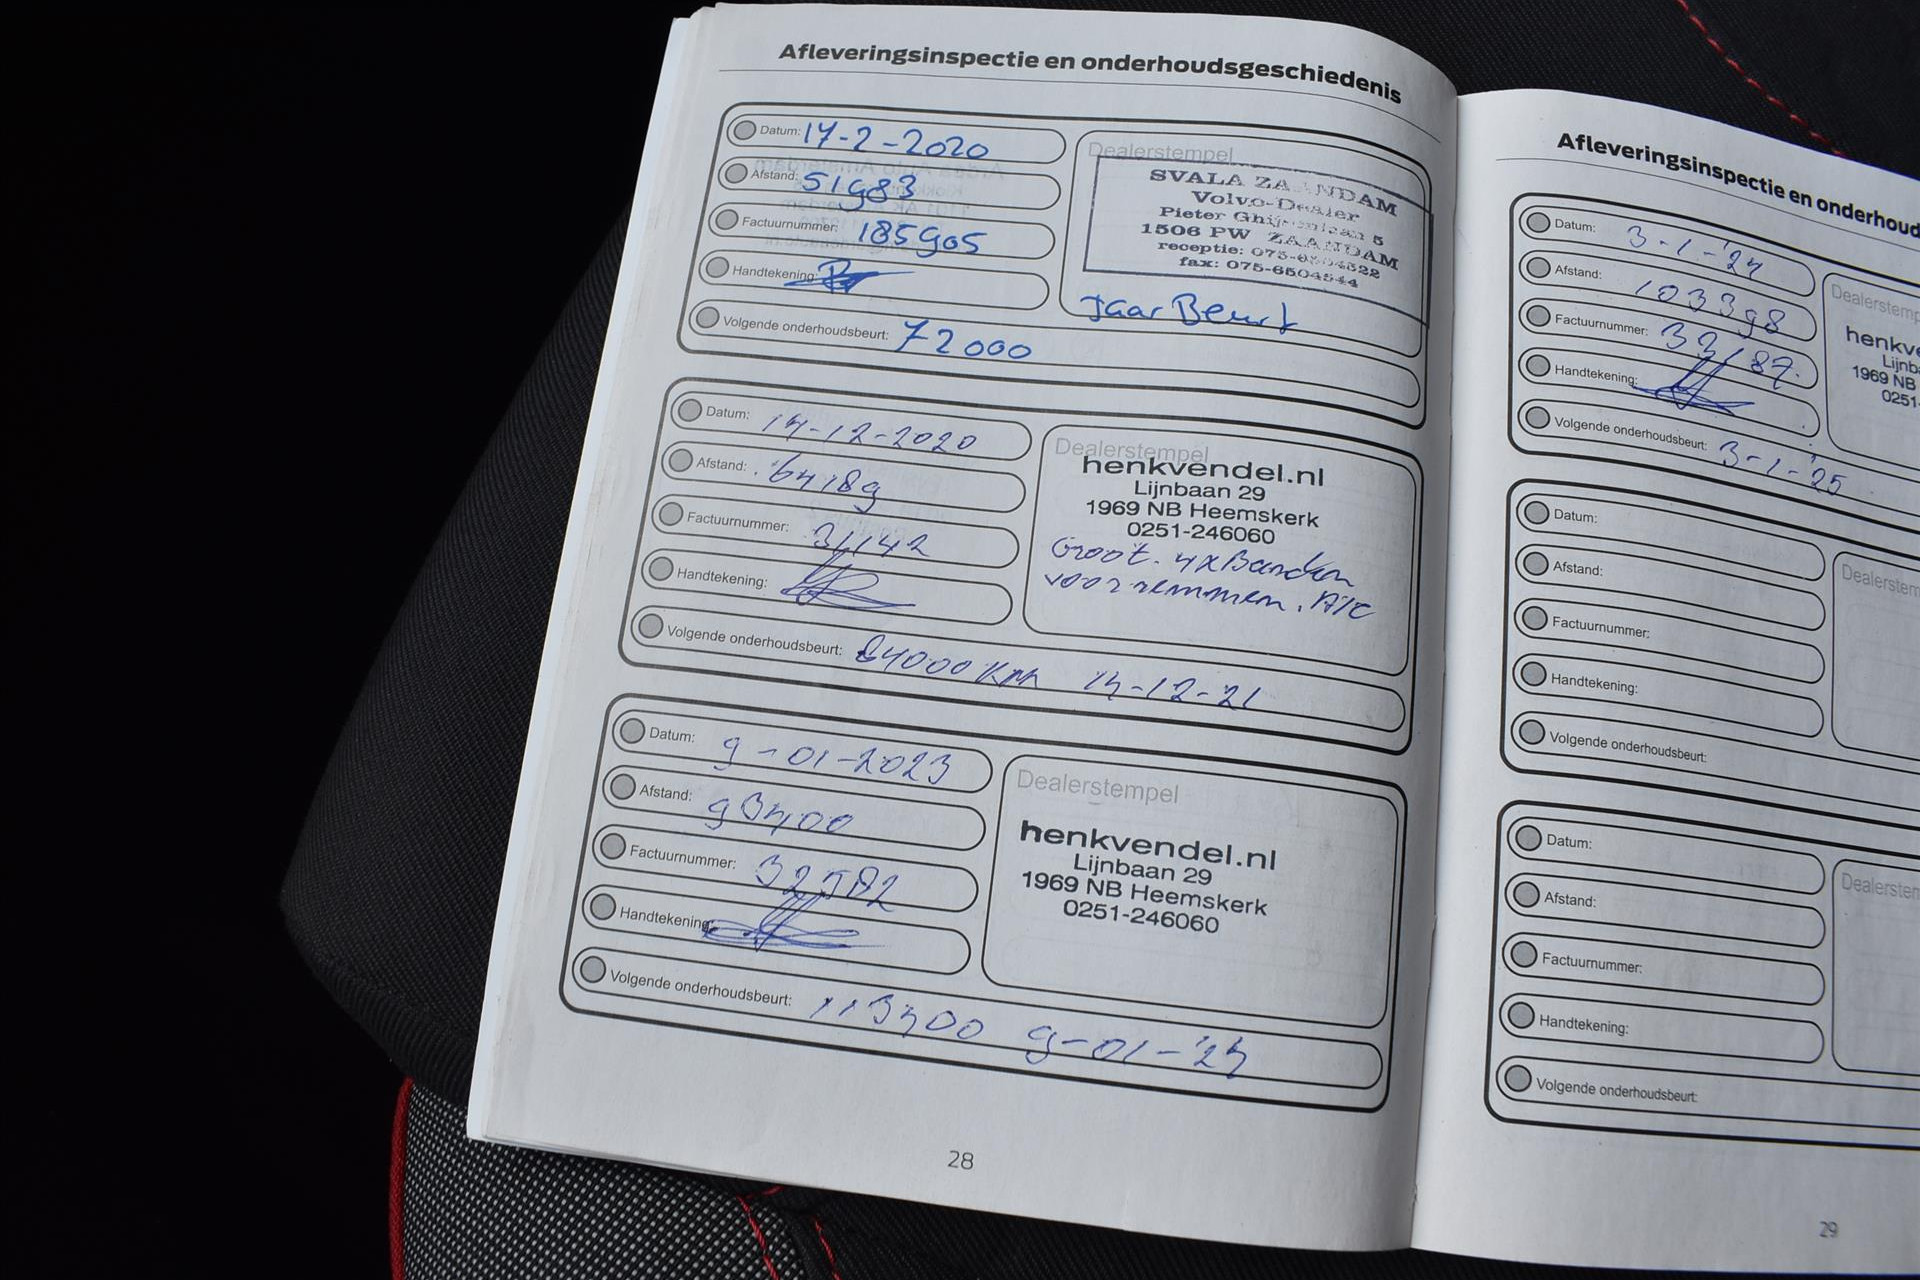 Afleveringsinspectie en onderhoudsgeschiedenis
Datum: 17-2-2020
Afstand: 51983
Factuurnummer: 185905
Handtekening:
Volgende onderhoudsbeurt: 72000
Dealerstempel
SVALA ZAANDAM
Volvo-Dealer
Pieter Ghijsenlaan 5
1506 PW ZAANDAM
receptie:
fax: 075-6504544
Jaar Beurt
Datum: 14-12-2020
Afstand: 64189
Factuurnummer: 31142
Handtekening:
Volgende onderhoudsbeurt: 84000 Km 14-12-21
Dealerstempel
henkvendel.nl
Lijnbaan 29
1969 NB Heemskerk
0251-246060
Groot. 4x Banden
voorremmen.
Datum: 9-01-2023
Afstand: 93400
Factuurnummer:
Handtekening:
Volgende onderhoudsbeurt: 113400 9-01-'24
Dealerstempel
henkvendel.nl
Lijnbaan 29
1969 NB Heemskerk
0251-246060
28
Afleveringsinspectie en onderhoud
Datum: 3-1-'24
Afstand: 103398
Factuurnummer: 33187.
Handtekening:
Volgende onderhoudsbeurt: 3-1-'25
Dealerstemp
henkve
Lijnb
1969 NB
0251-
Datum:
Afstand:
Factuurnummer:
Handtekening:
Volgende onderhoudsbeurt:
Dealerstem
Datum:
Afstand:
Factuurnummer:
Handtekening:
Volgende onderhoudsbeurt:
Dealerstem
29